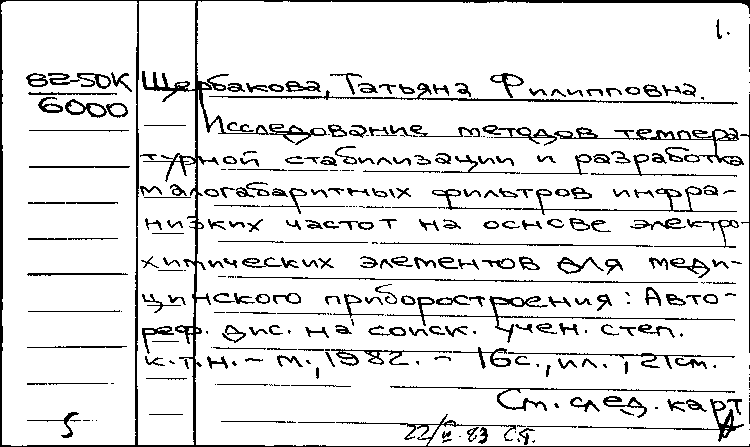 1.
82-50К Щербакова, Татьяна Филипповна.
6000
Исследование методов темпера-
турной стабилизации и разработка
малогабаритных фильтров инфра-
низких частот на основе электро-
химических элементов для меди-
цинского приборостроения: Авто-
реф. дис. на соиск. учен. степ.
к.т.н. – М., 1982. – 16с., ил.; 21см.
См. след. карт
5
22/II-83